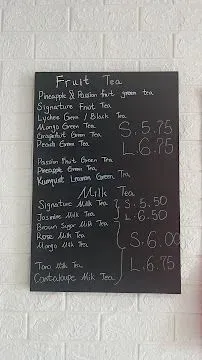 Fruit Tea
Pineapple & Passion fruit green tea
Signature Fruit Tea
Lychee Green / Black Tea
Mango Green Tea
Grapefruit Green Tea
Peach Green Tea
S. 5.75
L. 6.75
Passion Fruit Green Tea
Pineapple Green Tea
Kumquat Lemon Green Tea
Milk Tea
Signature Milk Tea
Jasmine Milk Tea
S. 5.50
L. 6.50
Brown Sugar Milk Tea
Rose Milk Tea
Mango Milk Tea
Taro Milk Tea
Cantaloupe Milk Tea
S. 6.00
L. 6.75